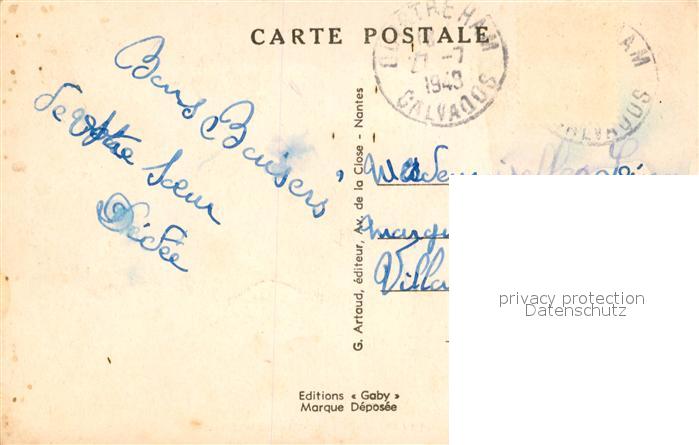 CARTE POSTALE
OUISTREHAM
-7
1949
CALVADOS
HAM
CALVADOS
Bons Baisers
de votre sœur
Dédée
Villa
G. Artaud, éditeur, Av. de la Close - Nantes
Editions « Gaby »
Marque Déposée
privacy protection
Datenschutz